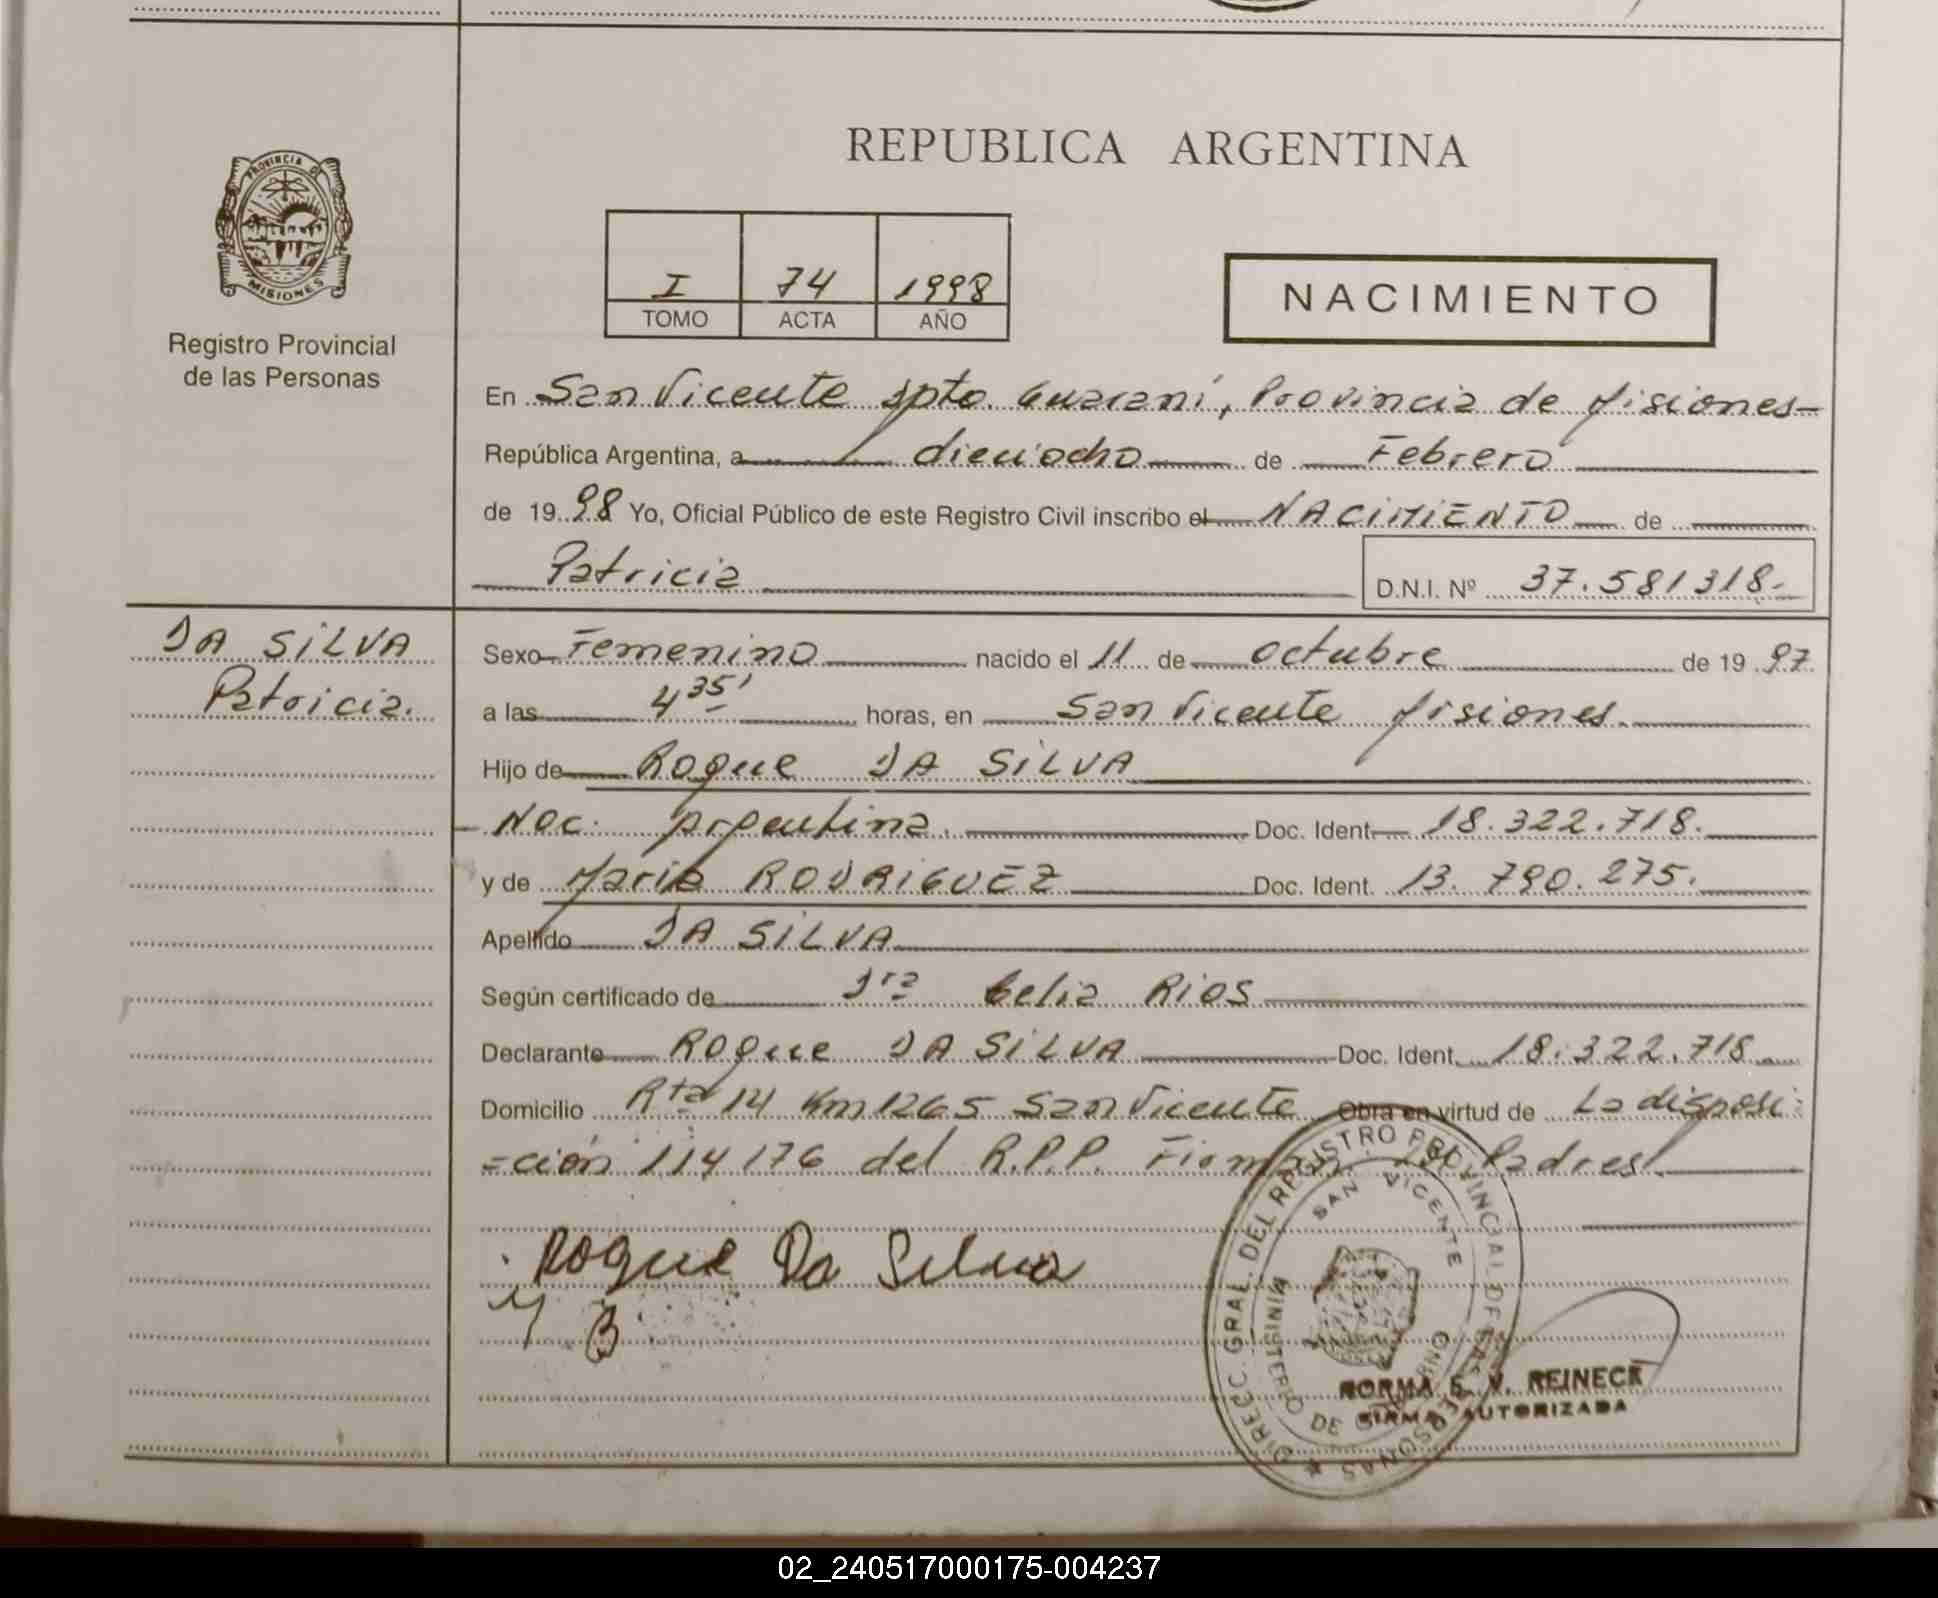 PROVINCIA DE
MISIONES
Registro Provincial
de las Personas
REPUBLICA ARGENTINA
I 74 1998
TOMO ACTA AÑO
NACIMIENTO
En San Vicente Dpto. Guaraní, Provincia de Misiones
República Argentina, a dieciocho de Febrero
de 1998 Yo, Oficial Público de este Registro Civil inscribo el NACIMIENTO de
Patricia D.N.I. Nº 37.581318.
DA SILVA
Patricia.
Sexo Femenino nacido el 11 de octubre de 1997
a las 4 35' horas, en San Vicente Misiones.
Hijo de Roque DA SILVA
Nac. Argentina. Doc. Ident 18.322.718.
y de Maria RODRIGUEZ Doc. Ident. 13.790.275.
Apellido DA SILVA
Según certificado de Dra Celia Rios
Declarante Roque DA SILVA Doc. Ident. 18.322.718
Domicilio Rta 14 Km 1265 San Vicente Obra en virtud de La disposi
=ción 114176 del R.P.P. Firman Padres
Roque Da Silva
DIRECC. GRAL. DEL REGISTRO PROVINCIAL DE LAS PERSONAS
SAN VICENTE
MINISTERIO DE GOBIERNO
NORMA S. V. REINECK
FIRMA AUTORIZADA
02_240517000175-004237